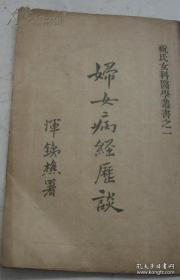 祝氏女科醫學叢書之一
婦女病經歷談
惲鐵樵署